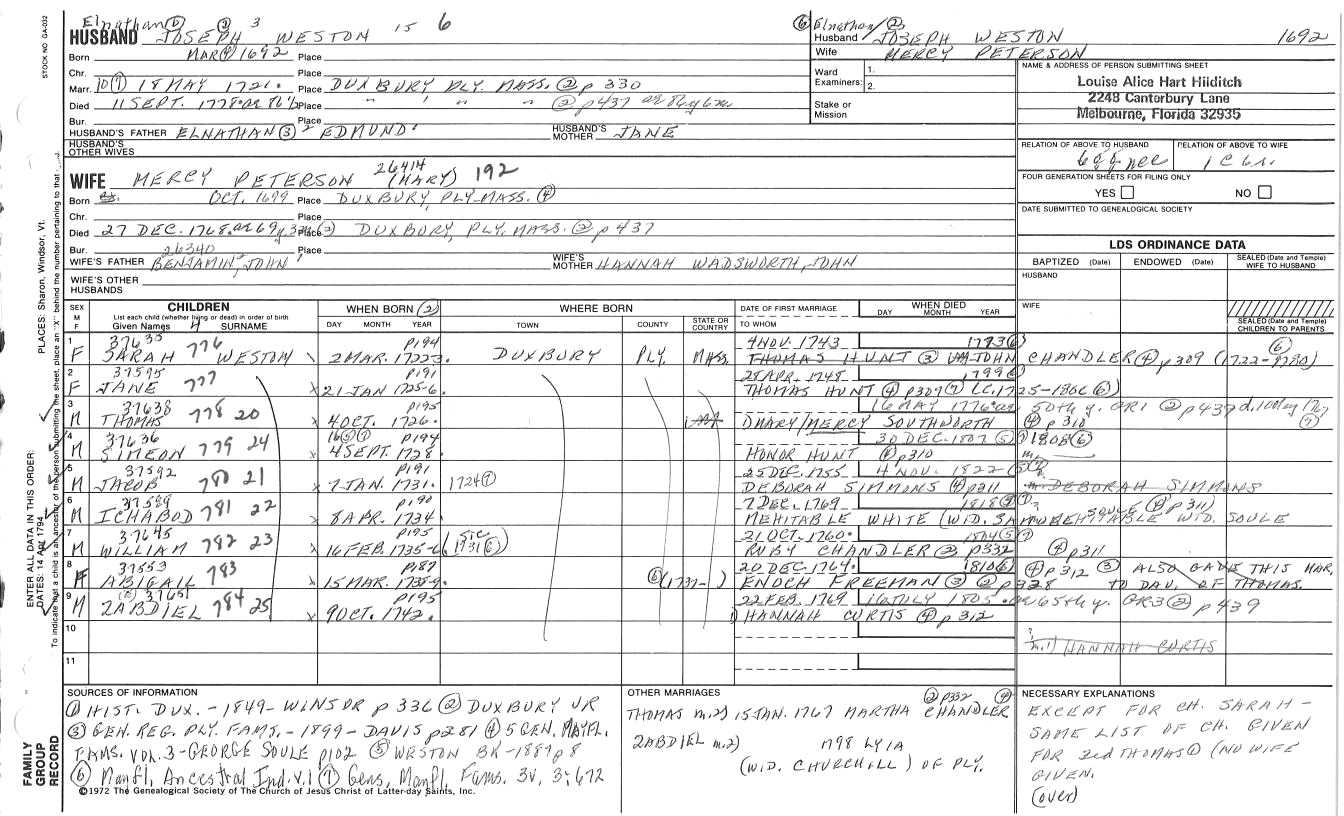 STOCK NO. GA-032
Elnathan ⑥ ② 3
HUSBAND JOSEPH WESTON 15 6
Born MAR ④ 1692 Place
Chr. Place
Marr. 10 ⑦ 18 MAY 1721. Place DUXBURY PLY. MASS. ② p 330
Died 11 SEPT. 1778 Place " " " " ② p437
Bur. Place
HUSBAND'S FATHER ELNATHAN ③ EDMUND HUSBAND'S MOTHER JANE
HUSBAND'S OTHER WIVES
WIFE MERCY PETERSON 26414 (MARY) 192
Born OCT. 1699 Place DUXBURY, PLY. MASS. ④
Chr. Place
Died 27 DEC. 1768 Place DUXBURY, PLY. MASS. ② p 437
Bur. Place
26340
WIFE'S FATHER BENJAMIN, JOHN WIFE'S MOTHER HANNAH WADSWORTH, JOHN
WIFE'S OTHER HUSBANDS
⑥ Elnathan/②
Husband JOSEPH WESTON 1692
Wife MERCY PETERSON
Ward Examiners: 1.
2.
Stake or Mission
NAME & ADDRESS OF PERSON SUBMITTING SHEET
Louise Alice Hart Hilditch
2248 Canterbury Lane
Melbourne, Florida 32935
RELATION OF ABOVE TO HUSBAND RELATION OF ABOVE TO WIFE
FOUR GENERATION SHEETS FOR FILING ONLY
YES NO
DATE SUBMITTED TO GENEALOGICAL SOCIETY
LDS ORDINANCE DATA
BAPTIZED (Date) ENDOWED (Date) SEALED (Date and Temple) WIFE TO HUSBAND
HUSBAND
WIFE
SEALED (Date and Temple) CHILDREN TO PARENTS
SEX M F
CHILDREN
List each child (whether living or dead) in order of birth
Given Names 4 SURNAME
WHEN BORN ②
DAY MONTH YEAR
WHERE BORN
TOWN COUNTY STATE OR COUNTRY
DATE OF FIRST MARRIAGE
TO WHOM
WHEN DIED
DAY MONTH YEAR
1 37635 776 p194 4 NOV. 1743 1773 ⑥ ⑥
F SARAH WESTON 2 MAR. 1722-3. DUXBURY PLY. MASS. THOMAS HUNT ③ JOHN CHANDLER ④ p309 (1722-1780)
2 37595 777 p191 1799 ⑥
F JANE x 21 JAN 1725-6. THOMAS HUNT ④ p309 ⑦ (C.1725-1806 ⑥)
3 37638 778 20 p195 16 MAY 1776 50th y. GR1 ② p437 d. 10 May 1767 ⑦
M THOMAS x 4 OCT. 1726. MARY/MERCY SOUTHWORTH ④ p310
4 37636 779 24 16 ⑤ ⑦ p194 30 DEC. 1807 ⑤ 1808 ⑥
M SIMEON x 4 SEPT. 1728. HONOR HUNT ④ p310
5 37592 780 21 p191 25 DEC. 1755 4 NOV. 1822
M JACOB x 7 JAN. 1731. 1724 ⑦ DEBORAH SIMMONS ④ p311 m. DEBORAH SIMMONS
6 37589 781 22 p190 7 DEC. 1769 1818
M ICHABOD x 8 APR. 1734. MEHITABLE WHITE (WID. MEHITABLE WID. SOULE SOULE ④ p311)
7 37645 782 23 p195 21 OCT. 1760. 1804
M WILLIAM x 16 FEB. 1735-6 (sic 1731 ⑥) RUBY CHANDLER ② p332 ④ p311
8 37553 783 p187 20 DEC. 1764. 1810 ⑥ ④ p312 ③ ALSO GAVE THIS MAR.
F ABIGAIL x 15 MAR. 1738-9. ⑥ (1737- ) ENOCH FREEMAN ③ ② p328 TO DAU. OF THOMAS.
9 37651 784 25 p195 22 FEB. 1769 16 JULY 1805. 65th y. GR3 ② p439
M ZABDIEL x 9 OCT. 1742. 1) HANNAH CURTIS ④ p312
10 m.1) HANNAH CURTIS
11
SOURCES OF INFORMATION
① HIST. DUX. - 1849 - WINSOR p 336 ② DUXBURY VR
③ GEN. REG. PLY. FAMS. - 1899 - DAVIS p281 ④ 5 GEN. MAYFL.
FAMS. VOL. 3 - GEORGE SOULE p102 ⑤ WESTON BK - 1887 p8
⑥ Mayfl. Ancestral Ind. v.1 ⑦ Gens, Mayfl. Fams. 3v, 3:672
©1972 The Genealogical Society of The Church of Jesus Christ of Latter-day Saints, Inc.
OTHER MARRIAGES ② p332 ④
THOMAS m.2) 15 JAN. 1767 MARTHA CHANDLER
ZABDIEL m.2) 1798 LYIA
(WID. CHURCHILL) OF PLY.
NECESSARY EXPLANATIONS
EXCEPT FOR CH. SARAH -
SAME LIST OF CH. GIVEN
FOR 3rd THOMAS ① (NO WIFE
GIVEN.
(over)
FAMILY GROUP RECORD
ENTER ALL DATA IN THIS ORDER:
DATES: 14 Apr 1794
PLACES: Sharon, Windsor, Vt.
To indicate that a child is an ancestor of the person submitting the sheet, place an "X" behind the number pertaining to that